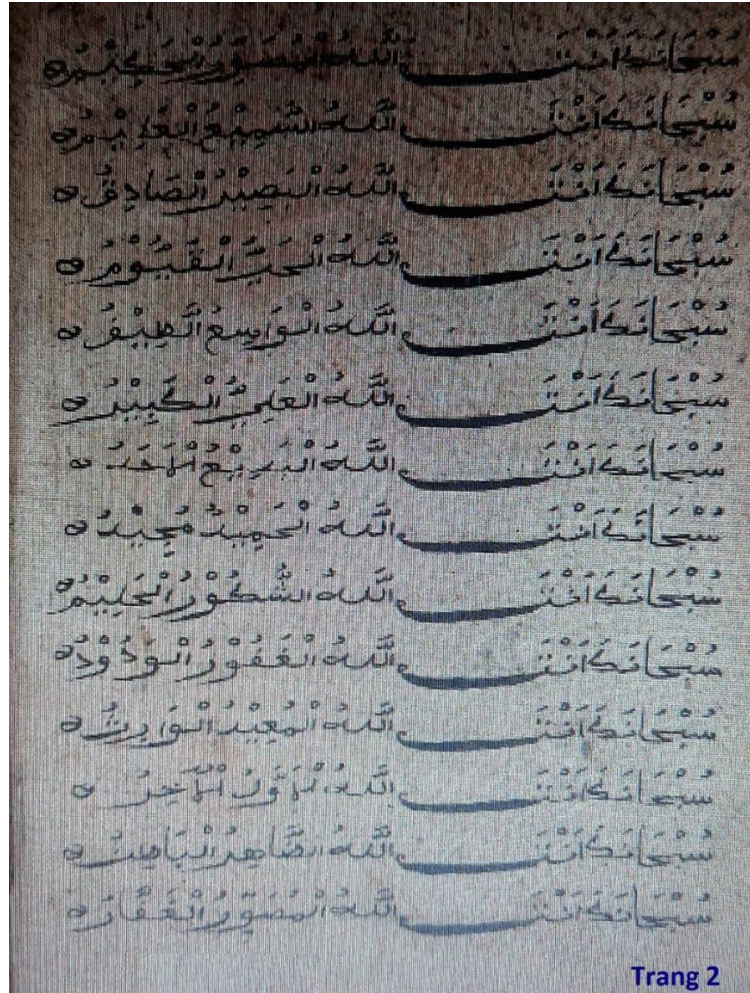 سُبْحَانَكَ اَنْتَ اللّٰهُ الْمُصَوِّرُ الْحَكِيْمُ ه
سُبْحَانَكَ اَنْتَ اللّٰهُ السَّمِيْعُ الْعَلِيْمُ ه
سُبْحَانَكَ اَنْتَ اللّٰهُ الْبَصِيْرُ الْصَادِقُ ه
سُبْحَانَكَ اَنْتَ اللّٰهُ الْحَيُّ الْقَيُّوْمُ ه
سُبْحَانَكَ اَنْتَ اللّٰهُ الْوَاسِعُ الَّطِيْفُ ه
سُبْحَانَكَ اَنْتَ اللّٰهُ الْعَلِيُّ الْكَبِيْرُ ه
سُبْحَانَكَ اَنْتَ اللّٰهُ الْبَدِيْعُ الْاَحَدُ ه
سُبْحَانَكَ اَنْتَ اللّٰهُ الْحَمِيْدُ مُجِيْدُ ه
سُبْحَانَكَ اَنْتَ اللّٰهُ الشَّكُوْرُ الْحَلِيْمُ ه
سُبْحَانَكَ اَنْتَ اللّٰهُ الْغَفُوْرُ الْوَدُوْدُ ه
سُبْحَانَكَ اَنْتَ اللّٰهُ الْمُعِيْدُ الْوَارِثُ ه
سُبْحَانَكَ اَنْتَ اللّٰهُ الْاَوَّلُ الْاٰخِرُ ه
سُبْحَانَكَ اَنْتَ اللّٰهُ الظَّاهِرُ الْبَاطِنُ ه
سُبْحَانَكَ اَنْتَ اللّٰهُ الْمُصَوِّرُ الْغَفَّارُ ه
Trang 2